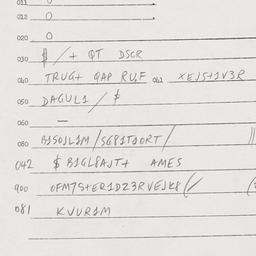 011 0
012 0
020 0
030 $ / + QT DSCR
040 TRUG+ QAP RUF 042 XEJS+1V3R
050 DAGUL1 / $
060 —
080 B1SOJL1M / SG81T1ORT /
042 $ B1GL8AJT+ AMES
900 OFM7S+ER1DZ3RVEJK8 (/
081 KVUR1M